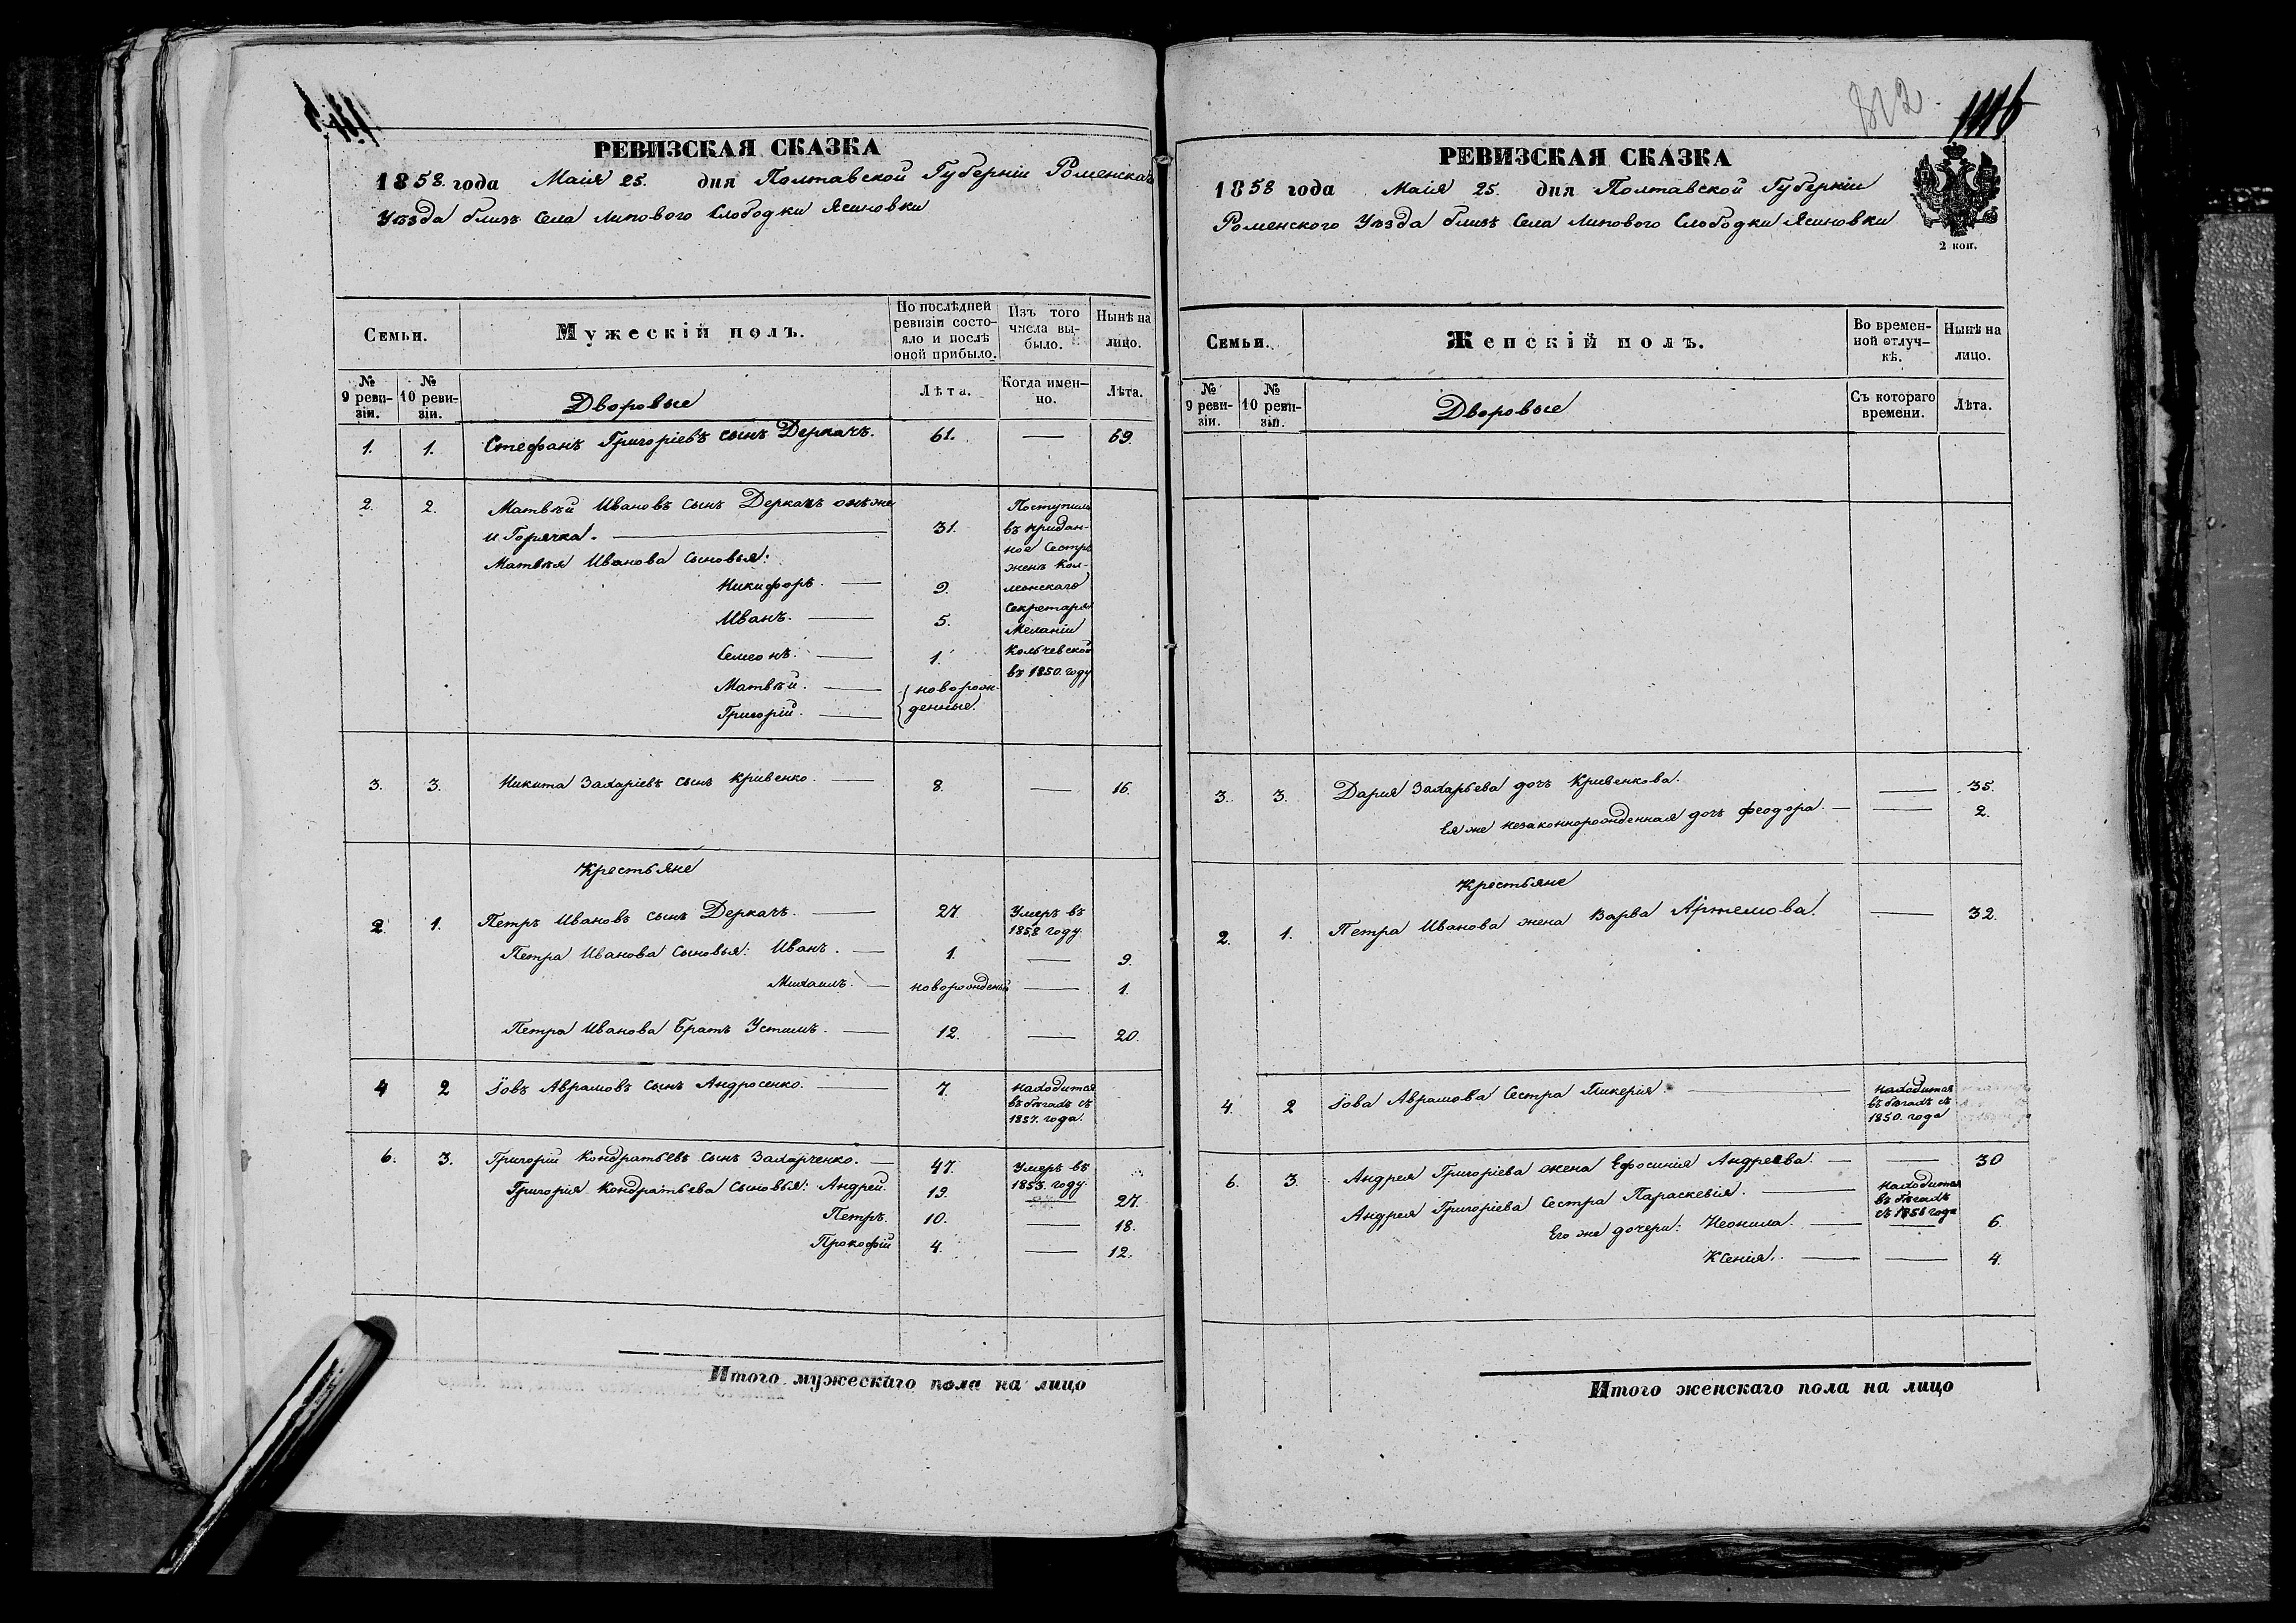 РЕВИЗСКАЯ СКАЗКА
1858. года Маія 25. дня Полтавской Губерніи Роменскаго
Уѣзда близъ Села Липового Слободки Ясиновки
Семьи.
Мужескій полъ.
По послѣдней ревизіи состо-
яло и послѣ
оной прибыло.
Изъ того
числа вы-
было.
Нынѣ на
лицо.
№
9 реви-
зіи.
№
10 реви-
зіи.
Дворовые
Лѣта.
Когда имен-
но.
Лѣта.
1. 1. Стефанъ Григоріевъ сынъ Деркачъ. 61. — 69.
2. 2. Матвѣй Ивановъ сынъ Деркачъ онъ же
и Горячка. — 31.
Матвѣя Иванова сыновья:
Никифоръ. — 9.
Иванъ. — 5.
Семеонъ. — 1.
Матвѣй. —
Григорій. —
новорож-
денные.
Поступили
въ придан-
ное Сестрѣ
женѣ Кол-
лежскаго
Секретаря
Меланіи
Кольчевской
въ 1850. году
3. 3. Никита Захаріевъ сынъ Кривенко. — 8. — 16.
Крестьяне
2. 1. Петръ Ивановъ сынъ Деркачъ. — 27. Умеръ въ
1858 году.
Петра Иванова сыновья: Иванъ. — 1. — 9.
Михаилъ. — новорожденый — 1.
Петра Иванова Братъ Устимъ. — 12. — 20.
4 2 Іовъ Аврамовъ сынъ Андросенко. — 7. находится
въ бѣгахъ съ
1857. года.
6. 3. Григорій Кондратьевъ сынъ Захарченко. — 47. Умеръ въ
1853. году.
Григорія Кондратьева сыновья: Андрей. 19. — 27.
Петръ. 10. — 18.
Прокофій 4. — 12.
Итого мужескаго пола на лицо
РЕВИЗСКАЯ СКАЗКА
1858 года Маія 25. дня Полтавской Губерніи
Роменского Уѣзда близъ Села Липового Слободки Ясиновки
2 коп.
Семьи.
Женскій полъ.
Во времен-
ной отлуч-
кѣ.
Нынѣ на
лицо.
№
9 реви-
зіи.
№
10 реви-
зіи.
Дворовые
Съ котораго
времени.
Лѣта.
3. 3. Дарія Захарьева дочь Кривенкова. — 35.
Ея же незаконнорожденная дочь Феодора. — — 2.
Крестьяне
2. 1. Петра Иванова жена Варва Артемова. — 32.
4. 2 Іова Аврамова Сестра Гликерія. — находится
въ бѣгахъ съ
1850. года
6. 3. Андрея Григоріева жена Ефросинія Андреева. — — 30
Андрея Григоріева Сестра Параскевія. — находится
въ бѣгахъ
съ 1856 года
Его же дочери: Неонила. — — 6.
Ксенія. — — 4.
Итого женскаго пола на лицо